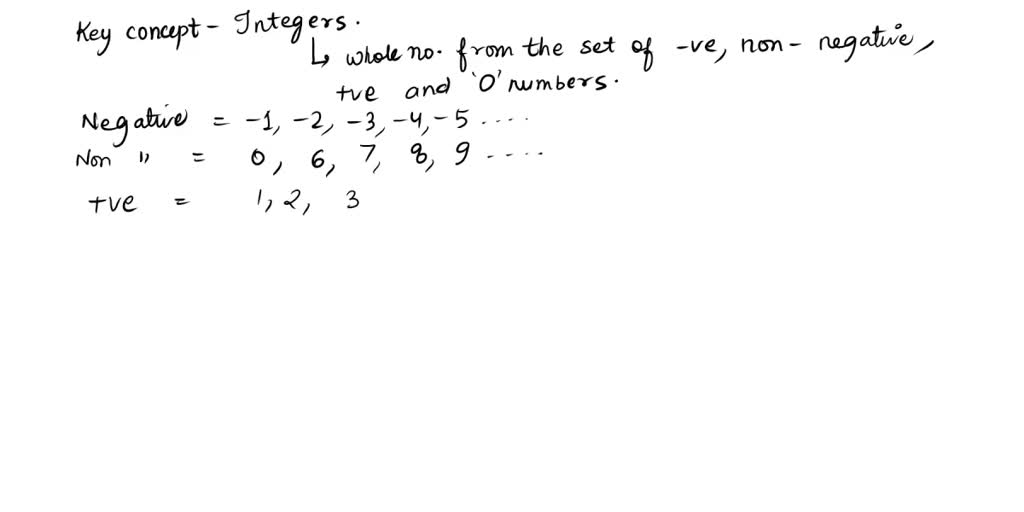 Key concept - Integers.
↳ whole no. from the set of -ve, non-negative,
+ve and '0' numbers.
Negative = -1, -2, -3, -4, -5 ....
Non " = 0, 6, 7, 8, 9 ....
+ve = 1, 2, 3